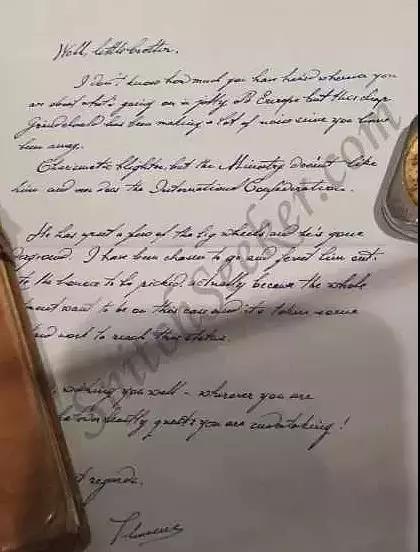 Well, little brother.
I don't know how much you have heard wherever you
are about what's going on in jolly old Europe but this chap
Grindelwald has been making a lot of noise since you have
been away.
Charismatic blighter, but the Ministry doesn't like
him and nor does the International Confederation.
He has upset a few of the big wheels and he's gone
underground. I have been chosen to go and ferret him out.
the bounce to be picked, actually because the whole
want to be on this case and it's taken some
hard work to reach this status.
wishing you well - wherever you are
beastly quests you are undertaking!
regards,
Theseus
SnitchSeeker.com